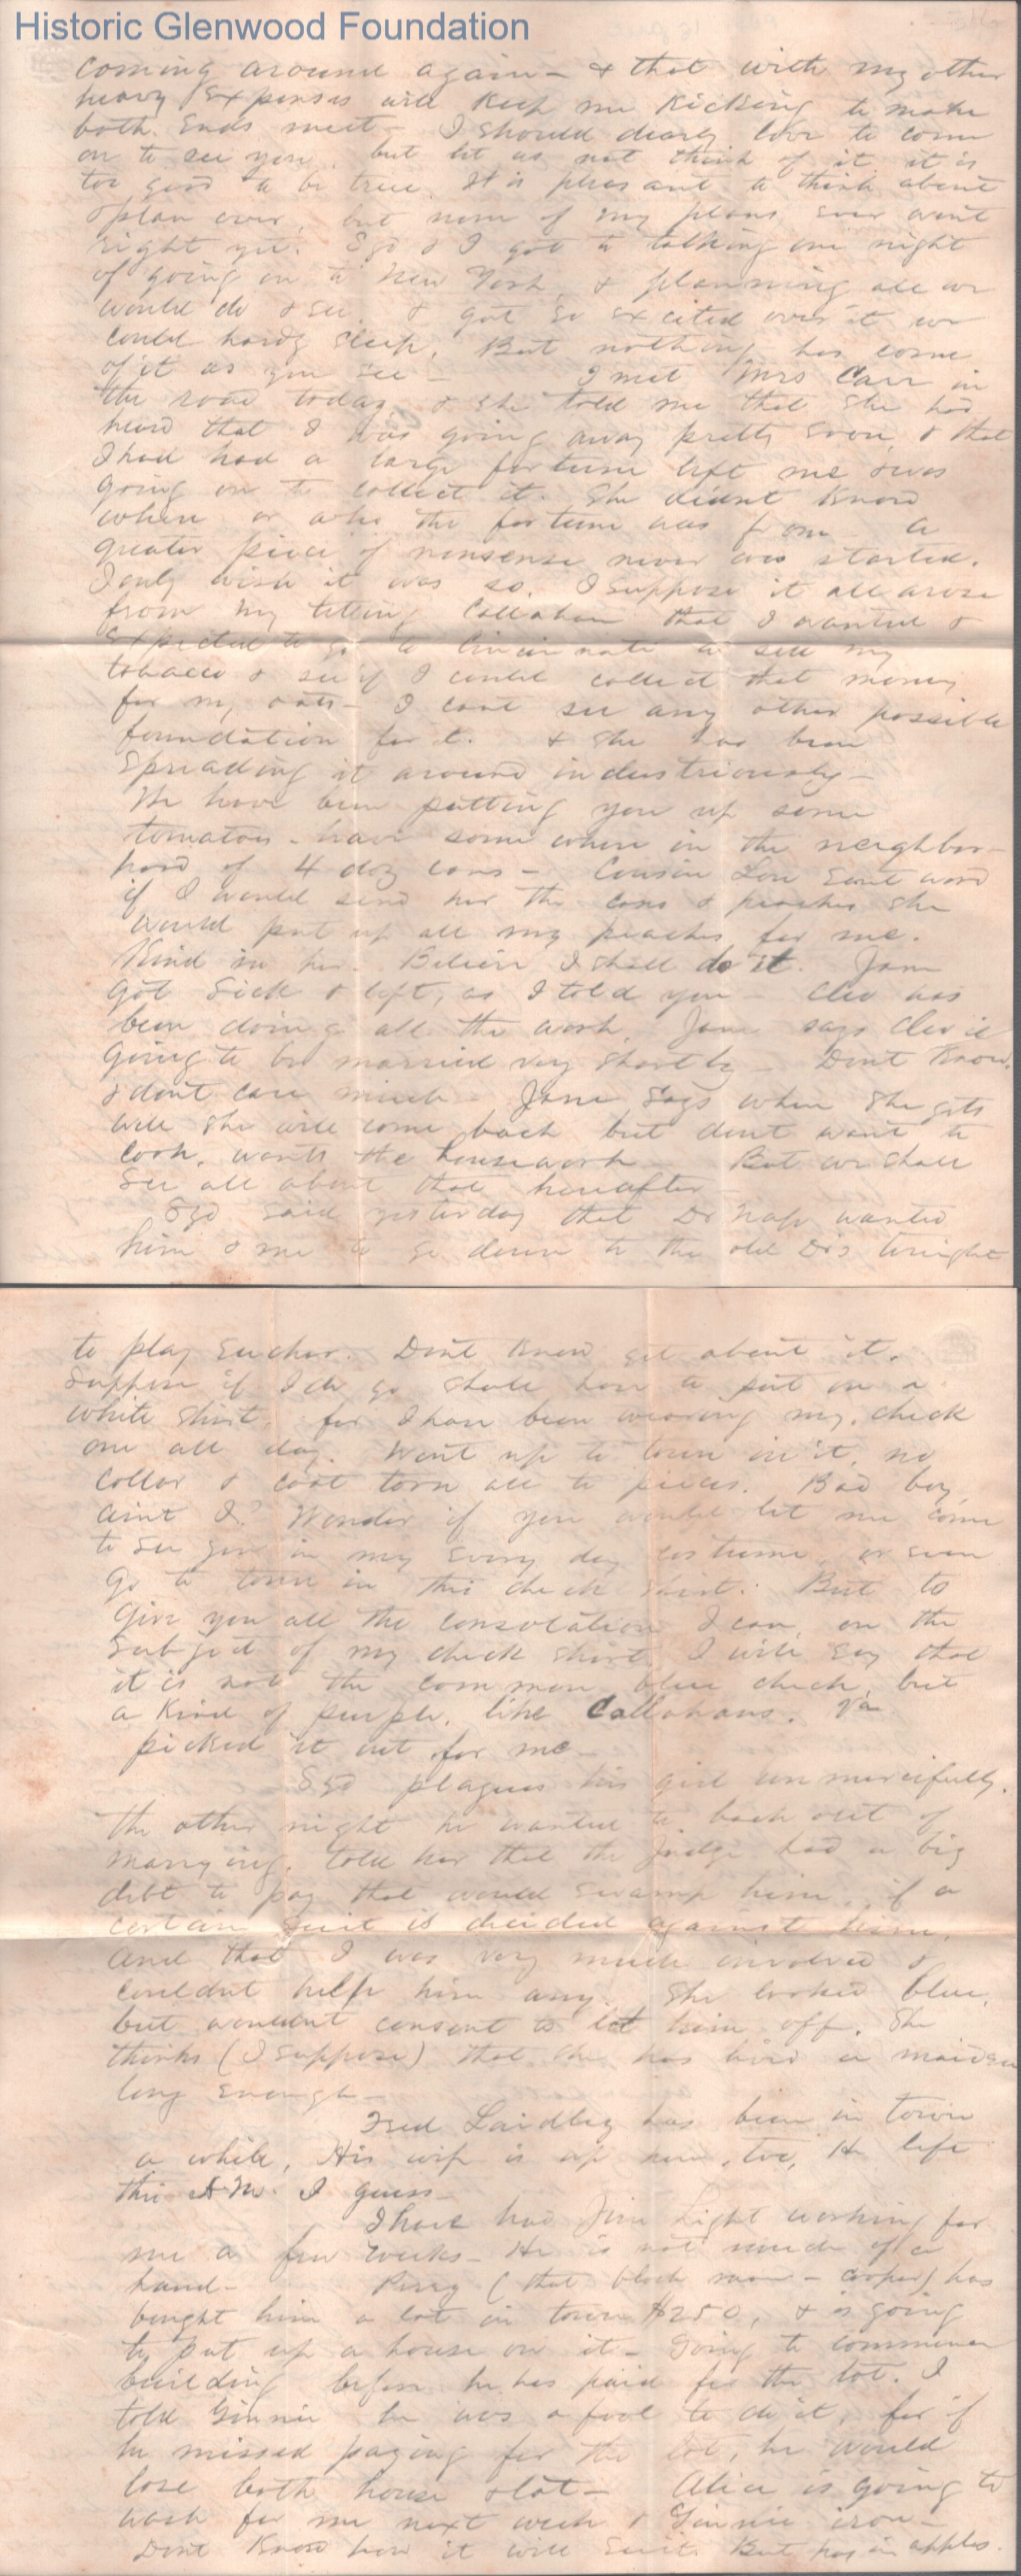 Historic Glenwood Foundation
coming around again - & that with my other
heavy expenses will keep me kicking to make
both ends meet - I should dearly love to come
on to see you, but let us not think of it, it is
too good to be true. It is pleasant to think about
& plan over, but none of my plans ever went
right yet. & I got to talking one night
of going on to New York, & planning all we
would do & see, & got so excited over it we
could hardly sleep. But nothing has come
of it as you see - I met Mrs Carr in
the road today & she told me that she had
heard that I was going away pretty soon, & that
I had had a large fortune left me & was
going on to collect it. She didnt know
where or who the fortune was from - A
greater piece of nonsense never was started.
I only wish it was so. I suppose it all arose
from my telling Callahan that I wanted &
expected to go to Cincinnati to sell my
tobacco & see if I could collect that money
for my oats - I cant see any other possible
foundation for it. & she has been
spreading it around industriously -
We have been putting you up some
tomatoes - have some where in the neighbor-
hood of 4 doz cans - Cousin Lou sent word
if I would send her the cans & peaches she
would put up all my peaches for me.
Kind in her. Believe I shall do it. Jane
got sick & left, as I told you - Cleo has
been doing all the work, Jane says Cleo is
going to be married very shortly - Dont know,
& dont care much - Jane says when she gets
well she will come back but dont want to
cook, wants the housework - But we shall
see all about that hereafter -
said yesterday that Dr wanted
him & me to go down to the old Drs tonight
to play Euchre. Dont know yet about it.
Suppose if I do go shall have to put on a
white shirt, for I have been wearing my check
one all day. Went up to town in it, no
collar & coat torn all to pieces. Bad boy,
aint I? Wonder if you would let me come
to see you in my every day costume, or even
go to town in this check shirt. But to
give you all the consolation I can, on the
subject of my check shirt, I will say that
it is not the common blue check, but
a kind of purple, like Callahans. Va
picked it out for me -
plagues his girl unmercifully.
The other night he wanted to back out of
marrying, told her that the Judge had a big
debt to pay that would swamp him, if a
certain suit is decided against him,
and that I was very much involved &
couldnt help him any. She looked blue,
but wouldnt consent to let him off. She
thinks (I suppose) that she has lived a maiden
long enough -
Fred Laidley has been in town
a while, His wife is up now, too, He left
this A.M. I guess -
I have had Jim Light working for
me a few weeks - He is not much of a
hand - Perry (that black man - cooper) has
bought him a lot in town $250, & is going
to put up a house on it - Going to commence
building before he has paid for the lot. I
told Ginnie he was a fool to do it, for if
he missed paying for the lot, he would
lose both house & lot - Alice is going to
wash for me next week & Ginnie iron -
Dont know how it will suit. But apples.